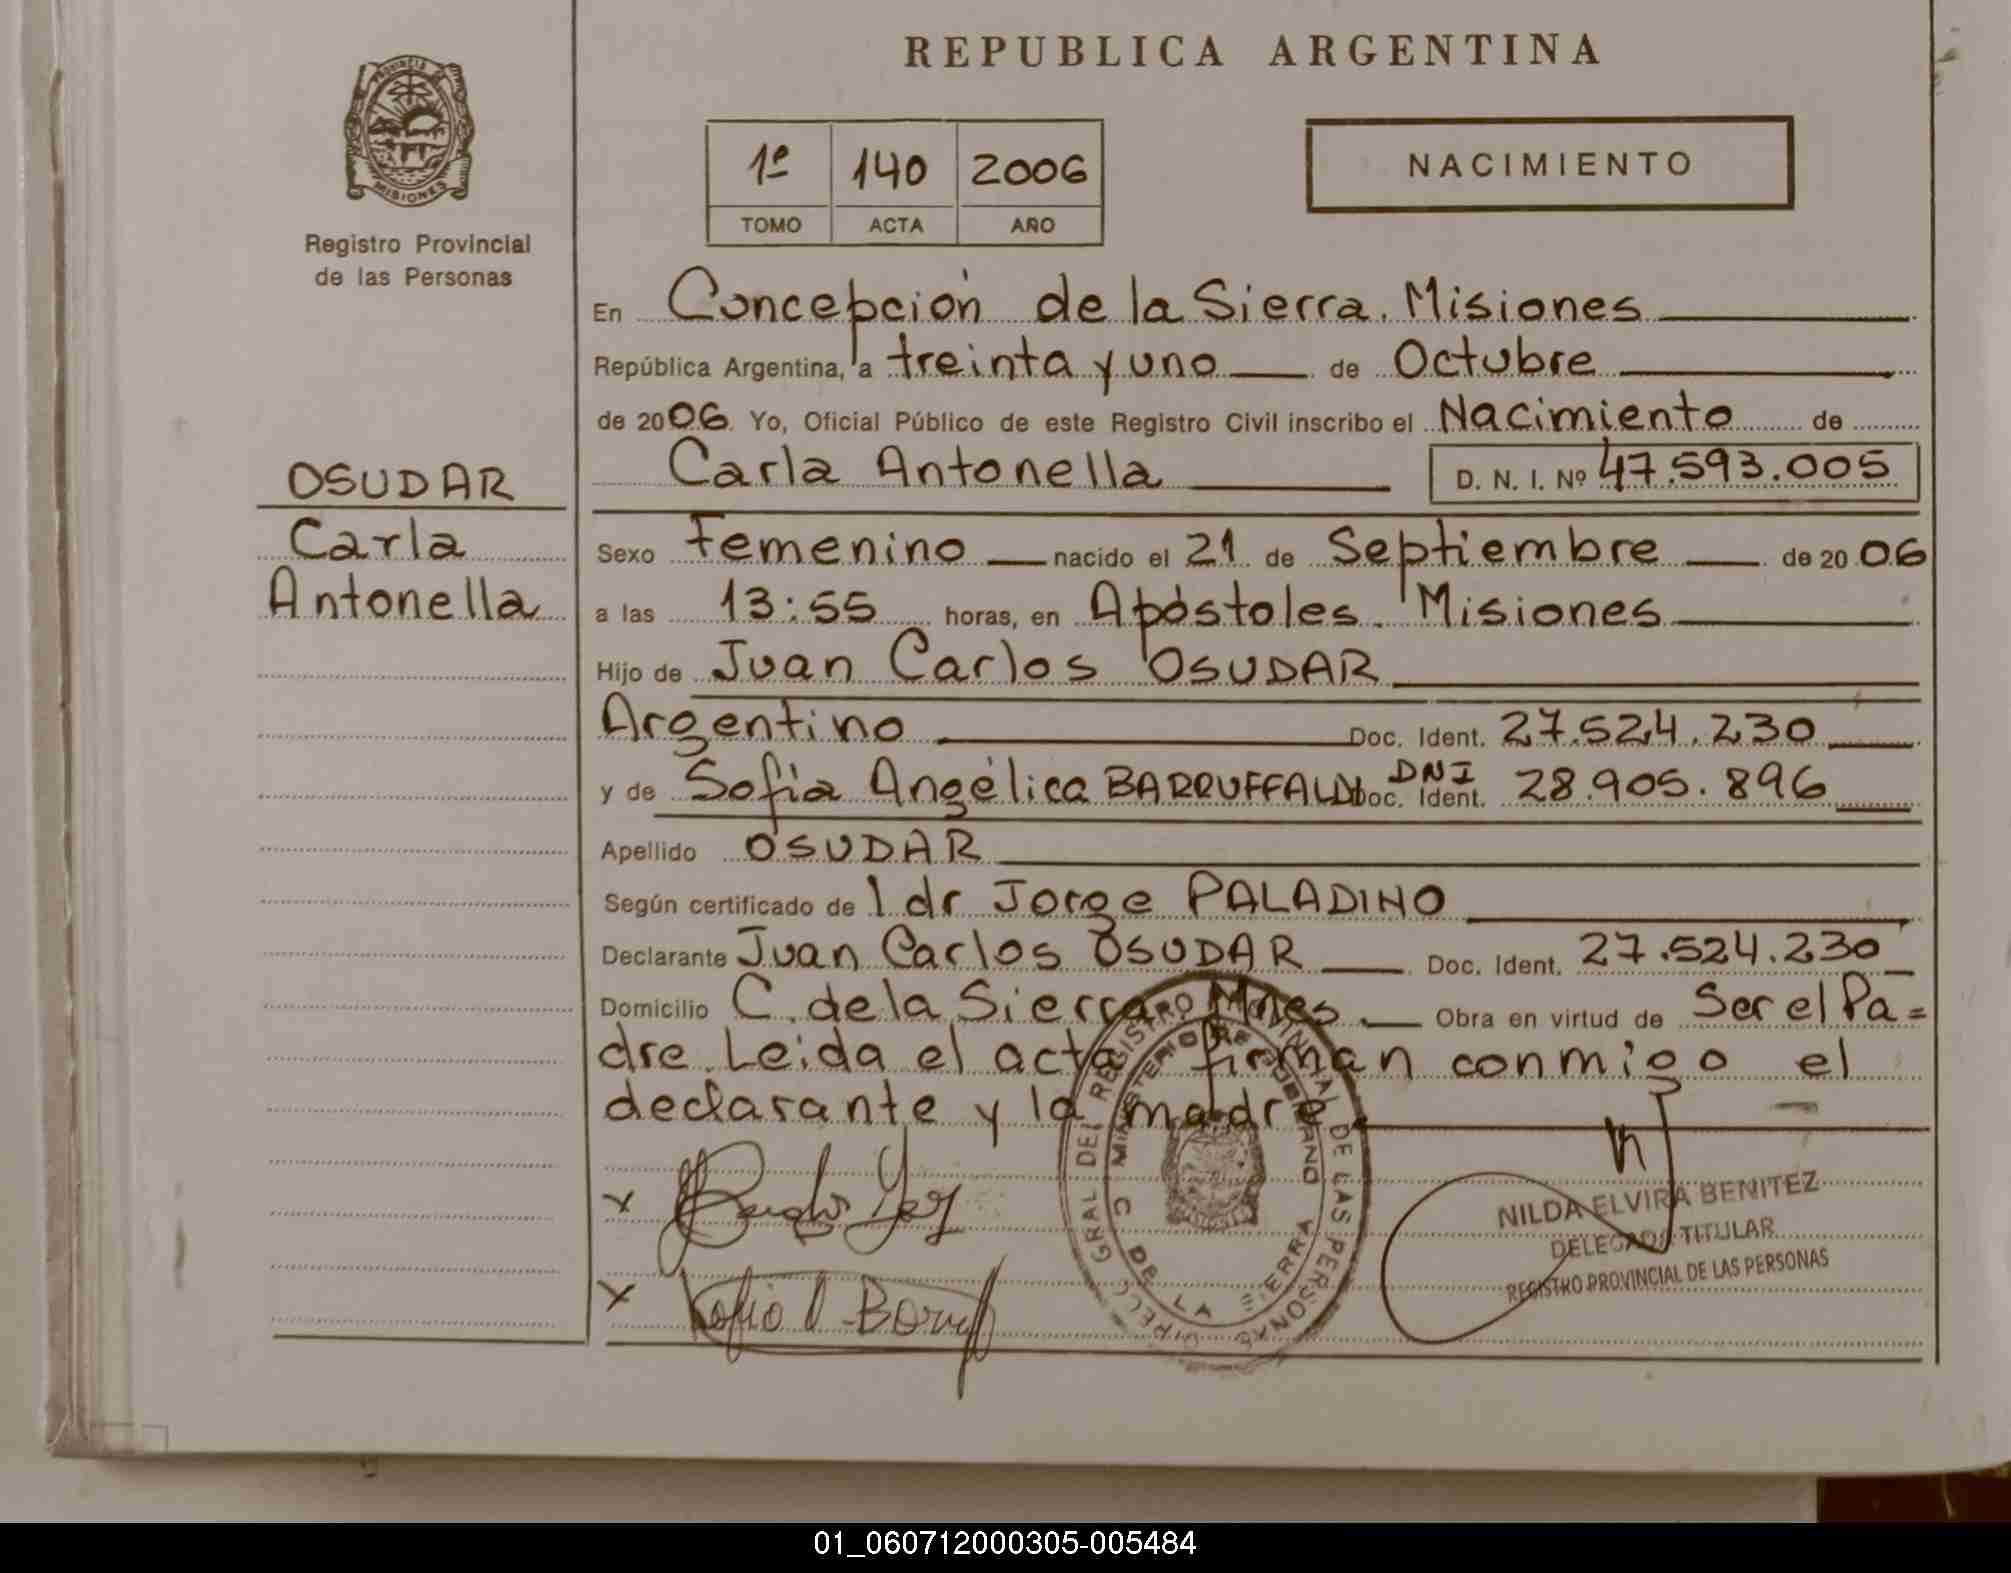 REPUBLICA ARGENTINA
PROVINCIA DE
MISIONES
Registro Provincial
de las Personas
1º 140 2006
TOMO ACTA AÑO
NACIMIENTO
En Concepción de la Sierra. Misiones
República Argentina, a treinta y uno de Octubre
de 2006. Yo, Oficial Público de este Registro Civil inscribo el Nacimiento de
Carla Antonella D. N. I. Nº 47.593.005
OSUDAR
Carla
Antonella
Sexo Femenino nacido el 21 de Septiembre de 2006
a las 13:55 horas, en Apóstoles. Misiones
Hijo de Juan Carlos OSUDAR
Argentino Doc. Ident. 27.524.230
y de Sofia Angélica BARRUFFALDI Doc. Ident. DNI 28.905.896
Apellido OSUDAR
Según certificado de l dr Jorge PALADINO
Declarante Juan Carlos OSUDAR Doc. Ident. 27.524.230
Domicilio C. de la Sierra Mnes. Obra en virtud de Ser el Pa=
dre. Leida el acta firman conmigo el
declarante y la madre
GRAL DEL REGISTRO PROVINCIAL DE LAS PERSONAS
MINISTERIO DE GOBIERNO
C DE LA SIERRA
x
x Sofia
NILDA ELVIRA BENITEZ
DELEGADA TITULAR
REGISTRO PROVINCIAL DE LAS PERSONAS
01_060712000305-005484